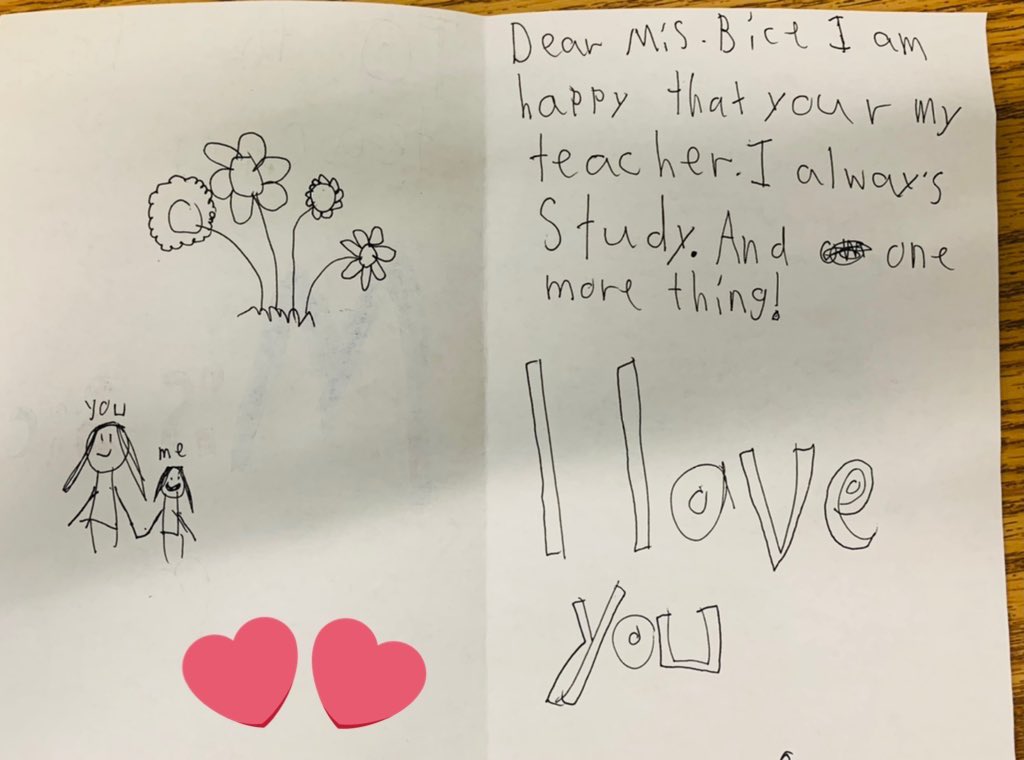 Dear Mis. Bice I am
happy that your my
teacher. I always
Study. And one
more thing!
I love
you
you
me